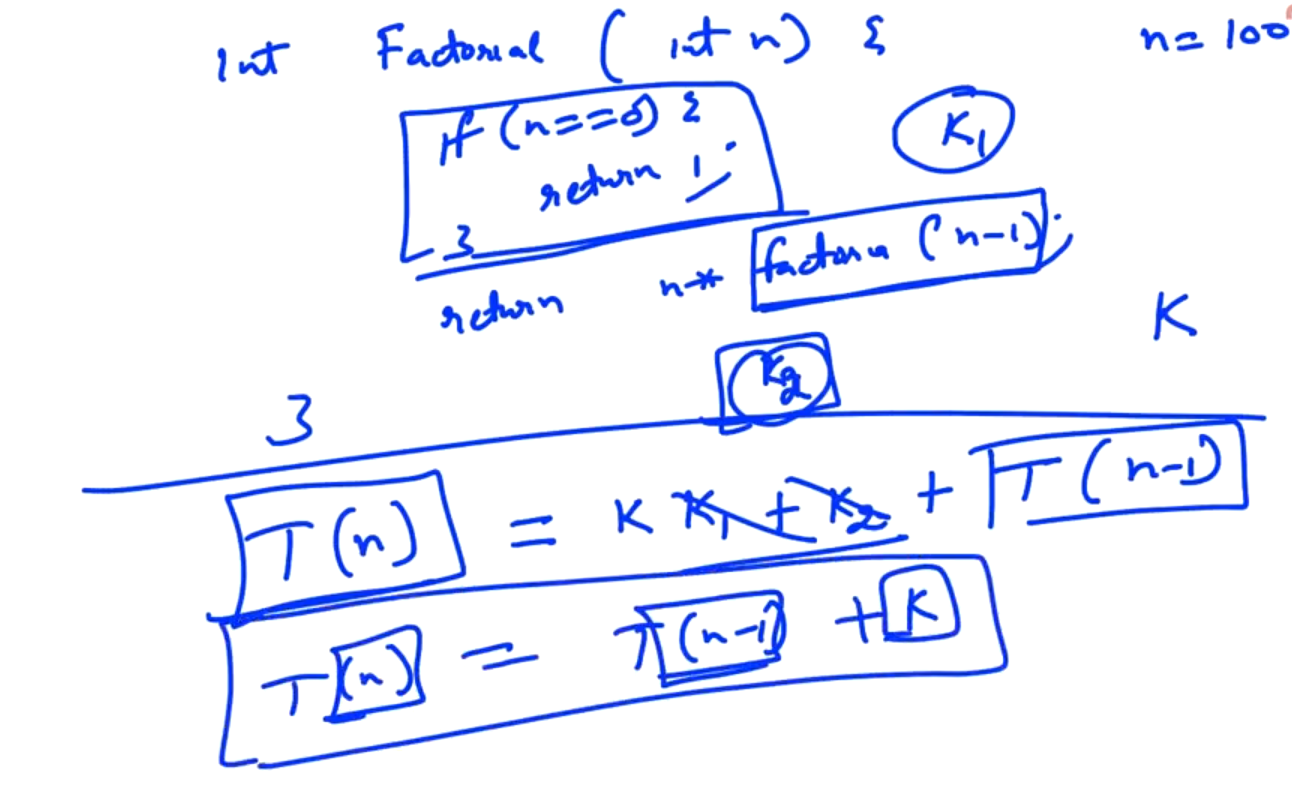 Int Factorial ( int n) { n= 100
if (n==0) {
return 1;
}
K1
return n* factoria (n-1);
K2
K
}
T(n) = K K1 + K2 + T(n-1)
T(n) = T(n-1) + K